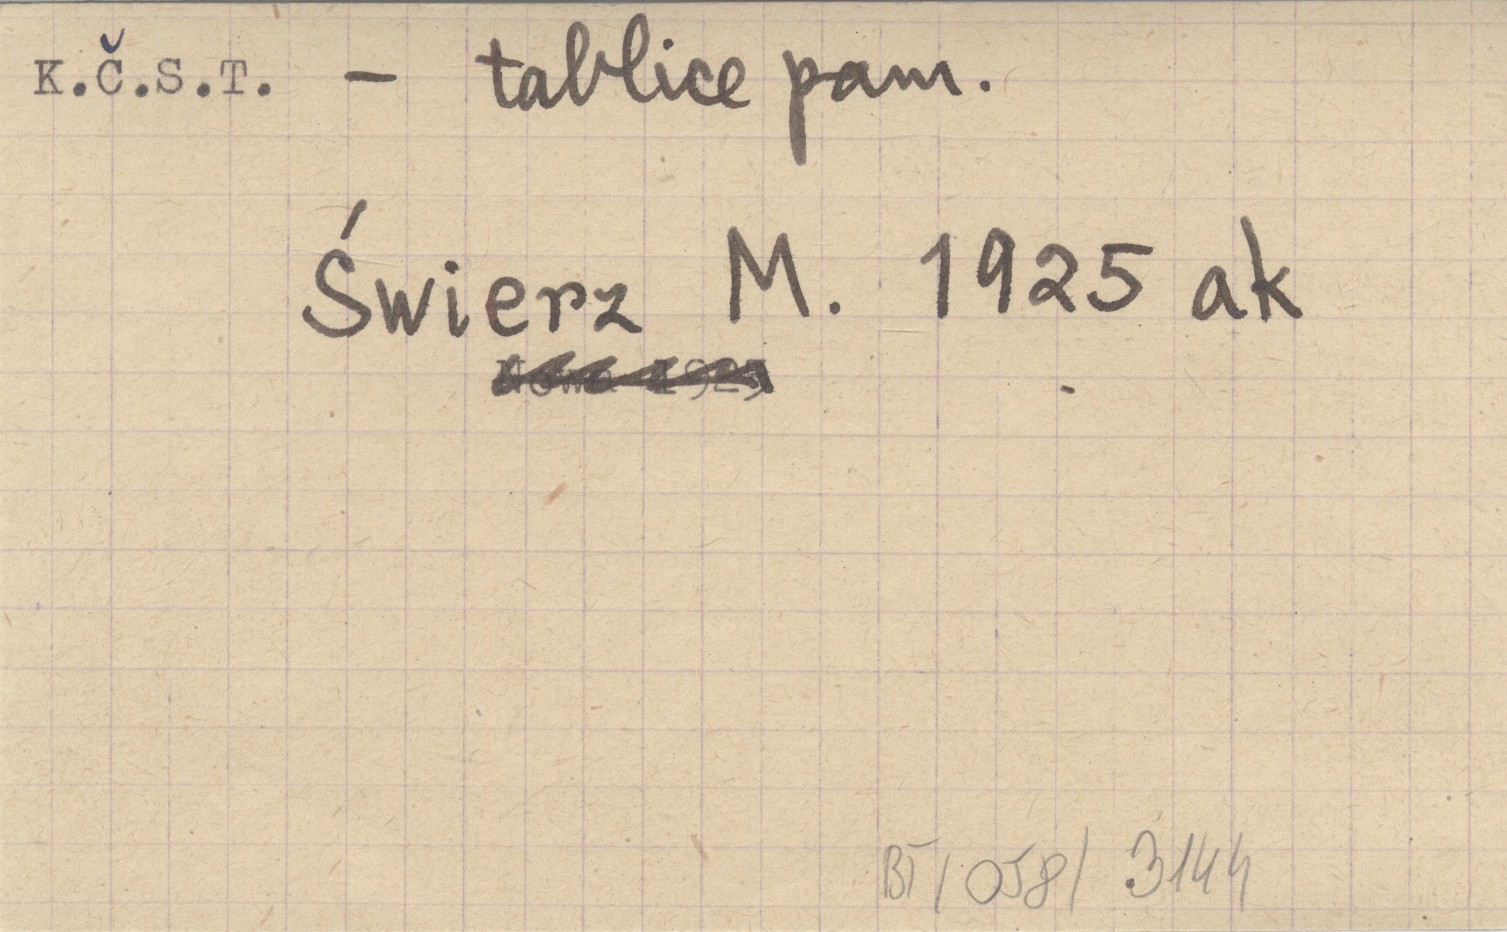 K.Č.S.T. — tablice pam.
Świerz M. 1925 ak
BT/058/3144